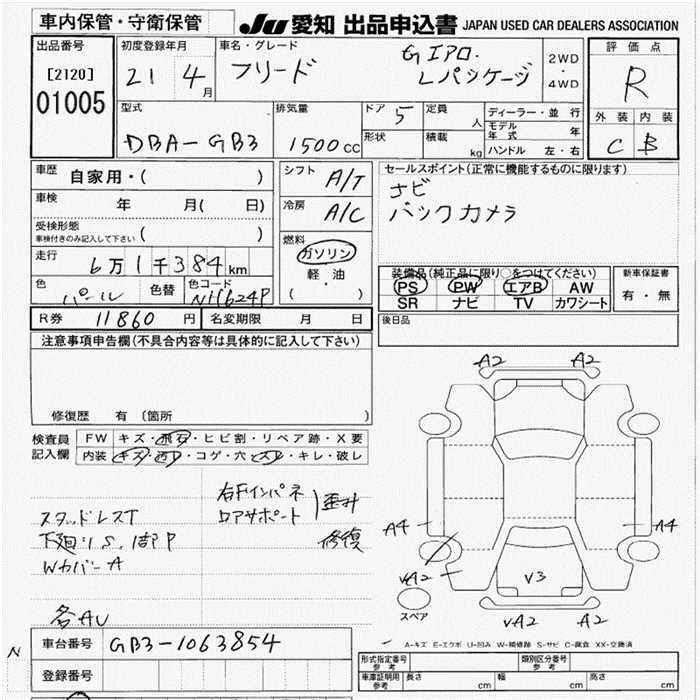 車内保管・守衛保管
JU 愛知 出品申込書 JAPAN USED CAR DEALERS ASSOCIATION
出品番号
[2120]
01005
初度登録年月
21 4月
車名・グレード
フリード
G エアロ.
Lパッケージ
2WD
・
4WD
評価点
R
外装 内装
C B
型式
DBA-GB3
排気量
1500cc
ドア 5
形状
定員 人
積載 kg
ディーラー・並行
モデル年式 年
ハンドル 左・右
車歴 自家用・( )
車検 年 月( 日)
受検形態
車検付きのみ記入して下さい ( )
走行 6万1千384km
色 パール
色替
色コード NH624P
シフト A/T
冷房 A/C
燃料
ガソリン
軽・油
( )
セールスポイント(正常に機能するものに限ります)
ナビ
バックカメラ
装備品(純正品に限り○をつけてください)
PS PW エアB AW
SR ナビ TV カワシート
新車保証書
有・無
R券 11860円
名変期限 月 日
後日品
注意事項申告欄(不具合内容等は具体的に記入して下さい)
修復歴 有(箇所 )
検査員
記入欄
FW キズ・飛石・ヒビ割・リペア跡・X要
内装 キズ・汚レ・コゲ・穴・スレ・キレ・破レ
スタッドレスT
下廻りS.1部P
WカバーA
各AU
右Fインパネ
ロアサポート
歪み
修復
A2 A2
A4 A4
vA2
v3
スペア
vA2 A2
A-キズ E-エクボ U-凹み W-補修跡 S-サビ C-腐食 XX-交換済
N
車台番号 GB3-1063854
登録番号
形式指定番号
参考
類別区分番号
参考
車庫証明用
参考
長さ cm
幅 cm
高さ cm